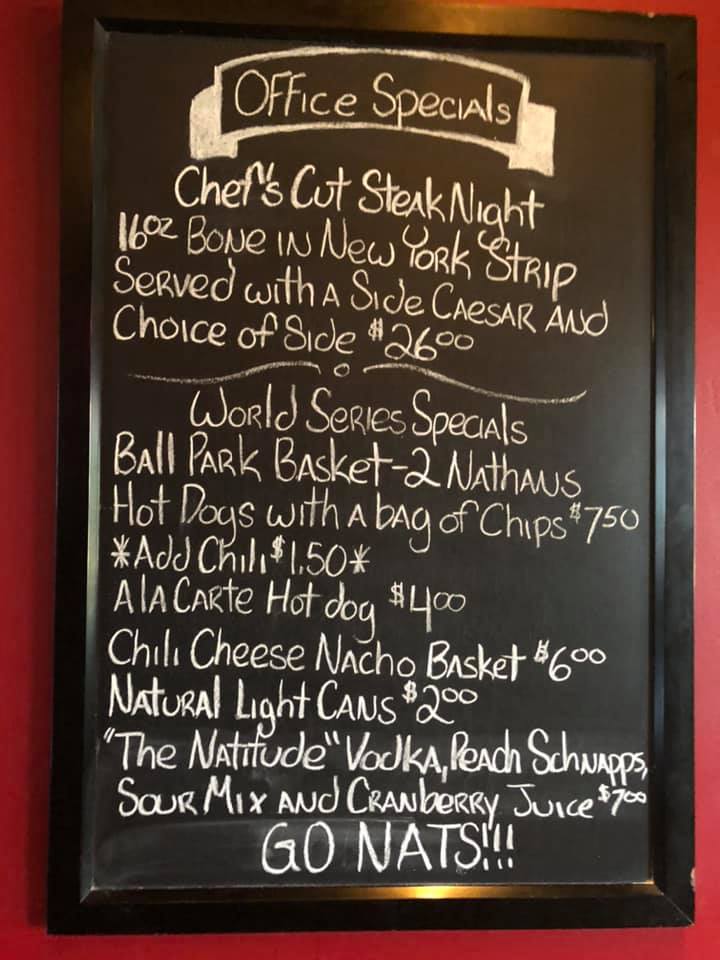 Office Specials
Chef's Cut Steak Night
16oz Bone in New York Strip
Served with a Side Caesar and
Choice of Side $26.00
World Series Specials
Ball Park Basket-2 Nathans
Hot Dogs with a bag of Chips $7.50
*Add Chili $1.50*
A la Carte Hot dog $4.00
Chili Cheese Nacho Basket $6.00
Natural Light Cans $2.00
"The Natitude" Vodka, Peach Schnapps,
Sour Mix and Cranberry Juice $7.00
GO NATS!!!